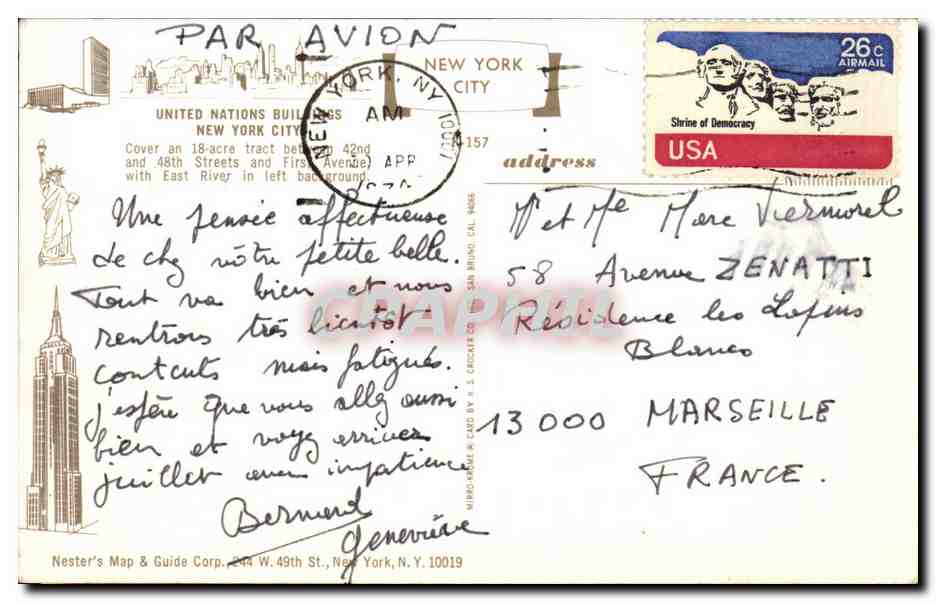 PAR AVION
NEW YORK
CITY
26c
AIRMAIL
Shrine of Democracy
USA
NEW YORK, NY 10001
AM
APR
UNITED NATIONS BUILDINGS
NEW YORK CITY
Cover an 18-acre tract between 42nd
and 48th Streets and First Avenue,
with East River in left background.
-157
address
Une pensée affectueuse
de chez vôtre petite belle.
Tout va bien et nous
rentrons très bientôt
contents mais fatigués.
j'espère que vous allez aussi
bien et voyez arriver
juillet avec impatience
Bernard
Geneviève
Mr et Me Marc Viermorel
58 Avenue ZENATTI
Résidence les Lapins
Blancs
13000 MARSEILLE
FRANCE.
MIRRO-KROME ® CARD BY H. S. CROCKER CO. SAN BRUNO, CAL. 94066
Nester's Map & Guide Corp., 244 W. 49th St., New York, N.Y. 10019